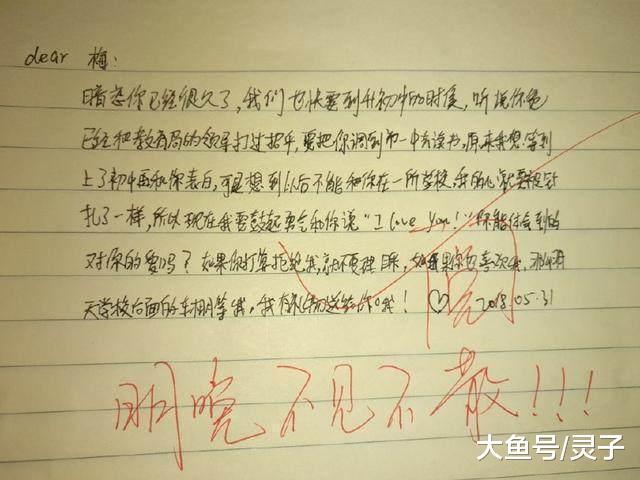 dear 梅:
暗恋你已经很久了,我们也快要到升初中的时候,听说你爸
已经和教育局的领导打过招乎,要把你调到市一中去读书,原来我想等到
上了初中再和你表白,可是想到以后不能和你在一所学校,我的心就要被针
扎了一样,所以现在我要鼓起勇气和你说“I love You!”你能体会到的
对你的爱吗?如果你打算拒绝我,就不要理睬,如果你也喜欢我,
天学校后面的车棚等我,我有礼物送给你哦!♡ 2018.05.31
阅
明晚不见不散!!!
大鱼号/灵子